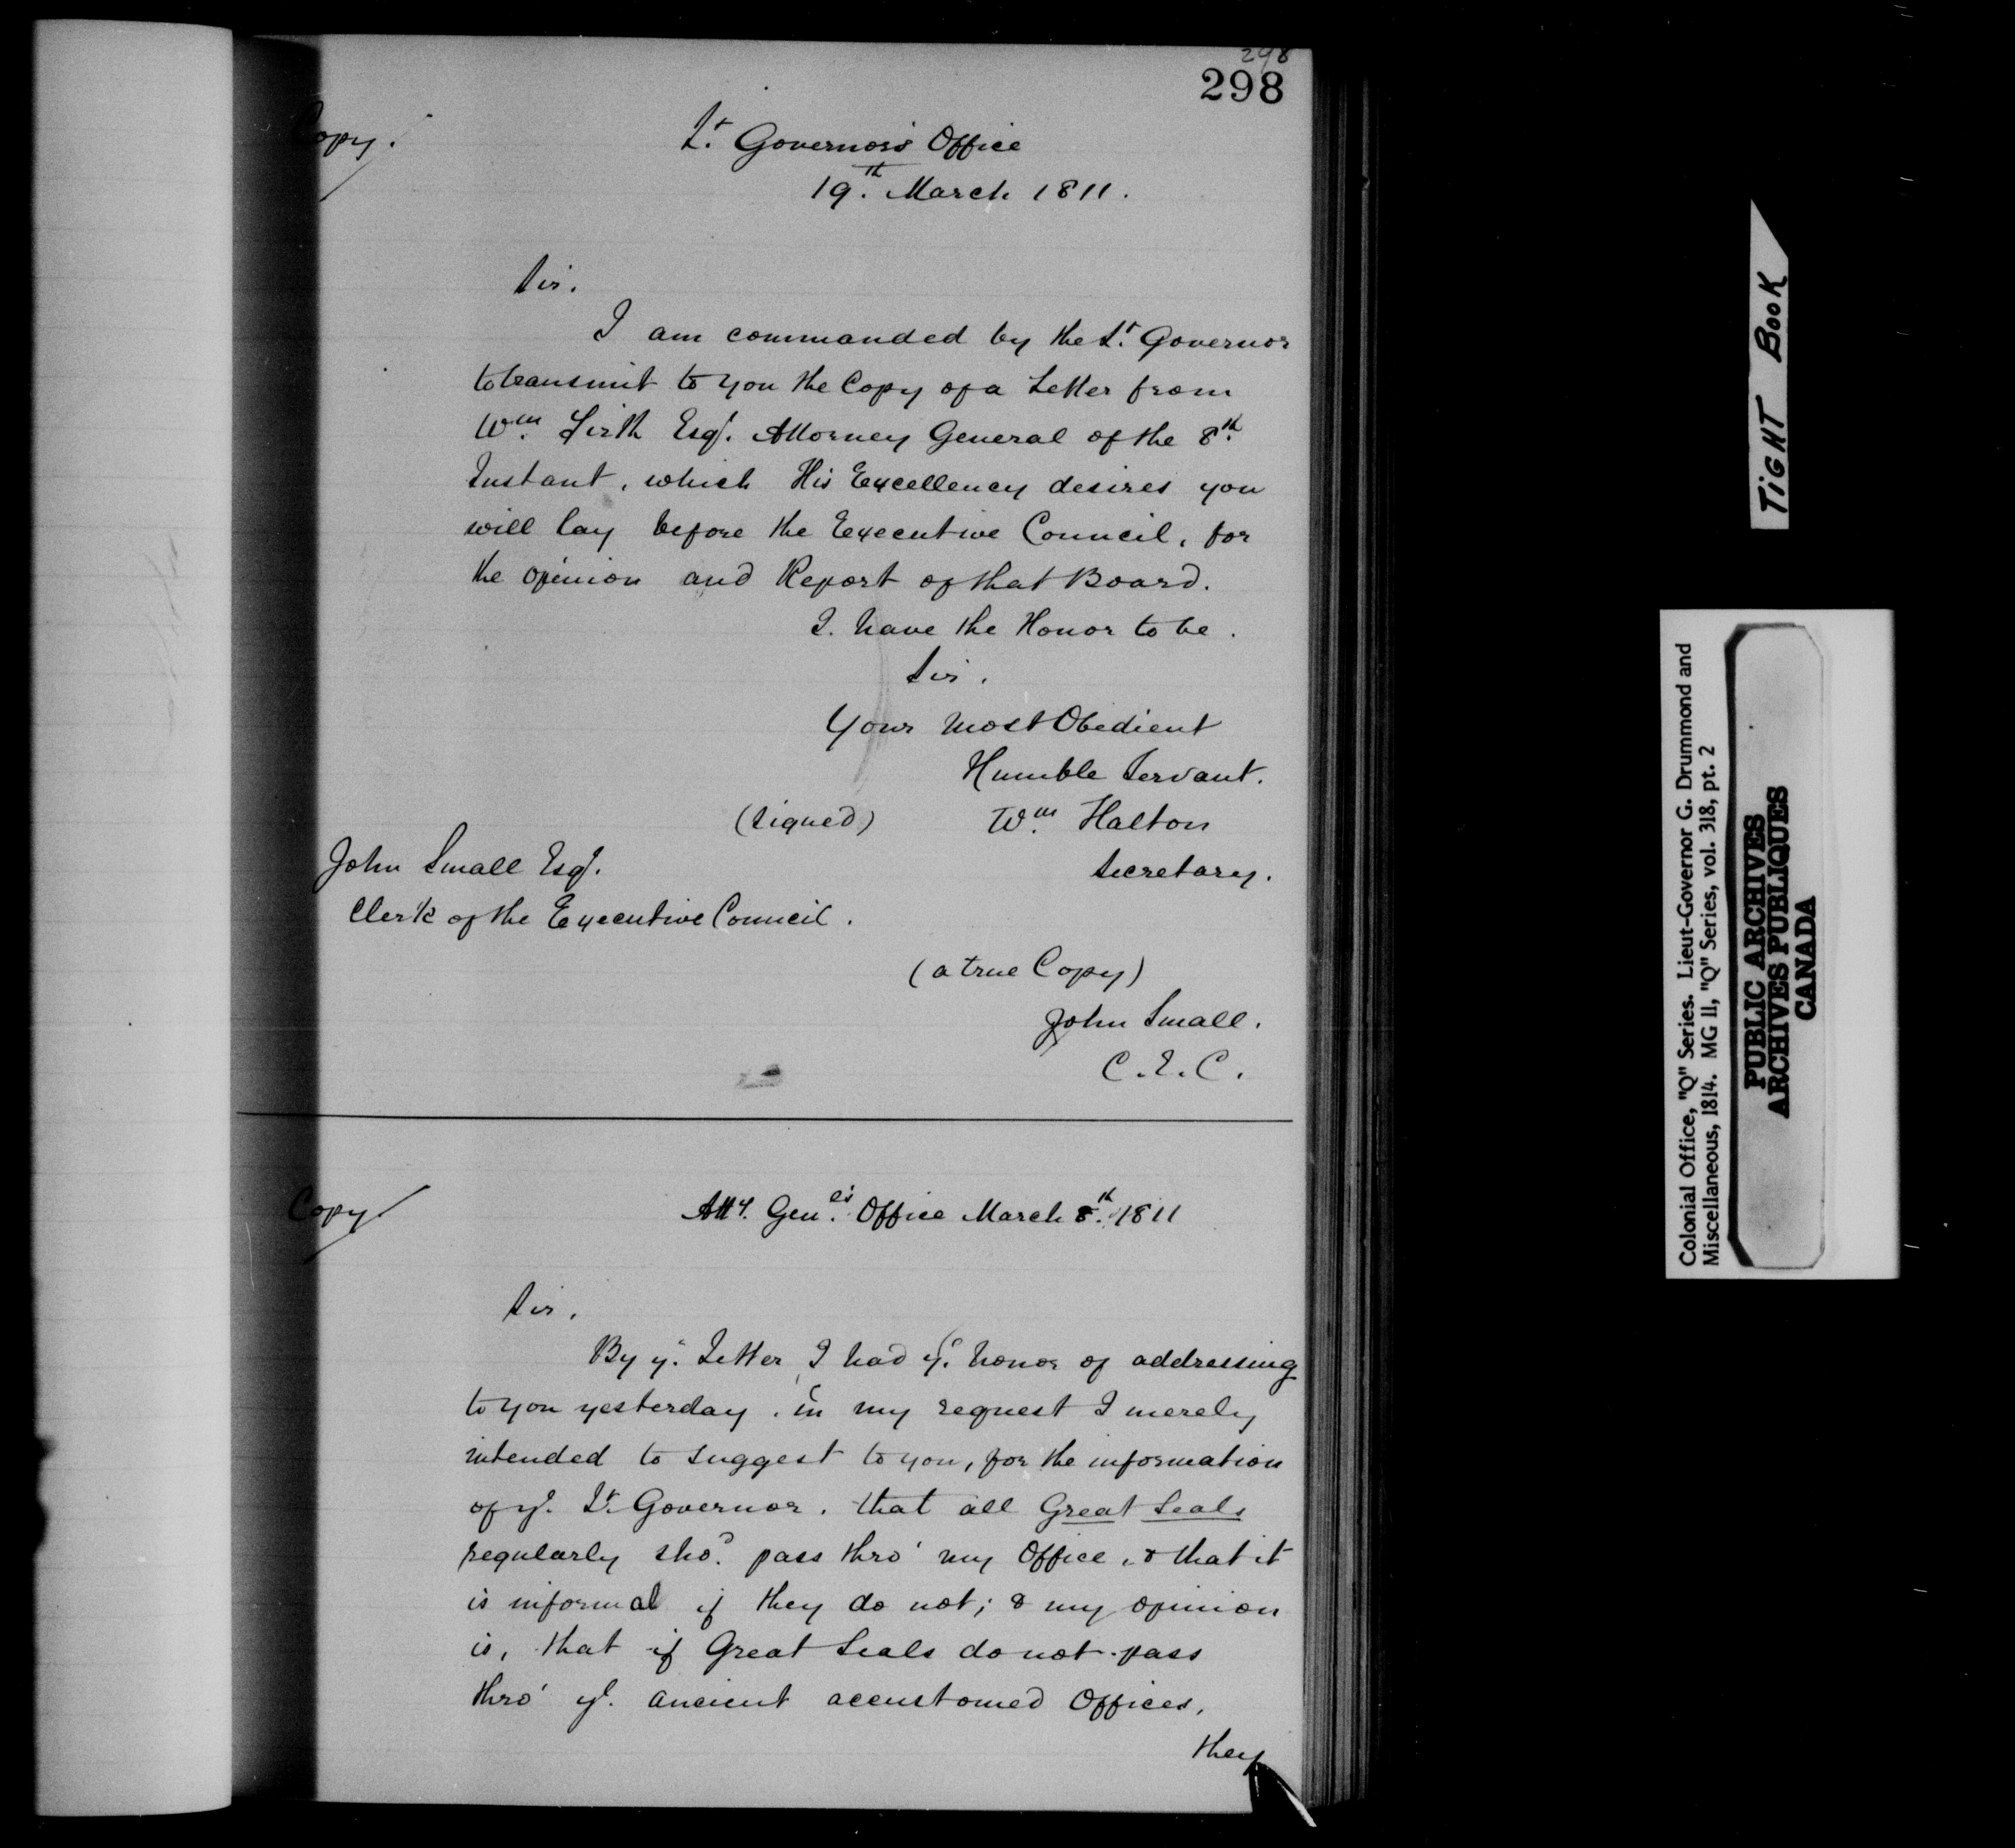 298
298
Copy.
Lt. Governor's Office
19.th March 1811.
Sir.
I am commanded by the Lt. Governor
to transmit to you the Copy of a Letter from
Wm. Firth Esqr. Attorney General of the 8th.
Instant, which His Excellency desires you
will lay before the Executive Council, for
the opinion and Report of that Board.
I. have the Honor to be.
Sir.
Your Most Obedient
Humble Servant.
(Signed) Wm. Halton
Secretary.
John Small Esqr.
Clerk of the Executive Council.
(a true Copy)
John Small.
C.E.C.
Copy
Atty. Genl's. Office March 8th. 1811
Sir,
By ye. Letter, I had ye. honor of addressing
to you yesterday, in my request I merely
intended to suggest to you, for the information
of ye. Lt. Governor, that all Great Seals
regularly shod. pass thro' my Office, & that it
is informal if they do not; & my opinion
is, that if Great Seals do not pass
thro' ye. ancient accustomed Offices,
they
TIGHT BOOK
Colonial Office, "Q" Series. Lieut-Governor G. Drummond and
Miscellaneous, 1814. MG 11, "Q" Series, vol. 318, pt. 2
PUBLIC ARCHIVES
ARCHIVES PUBLIQUES
CANADA